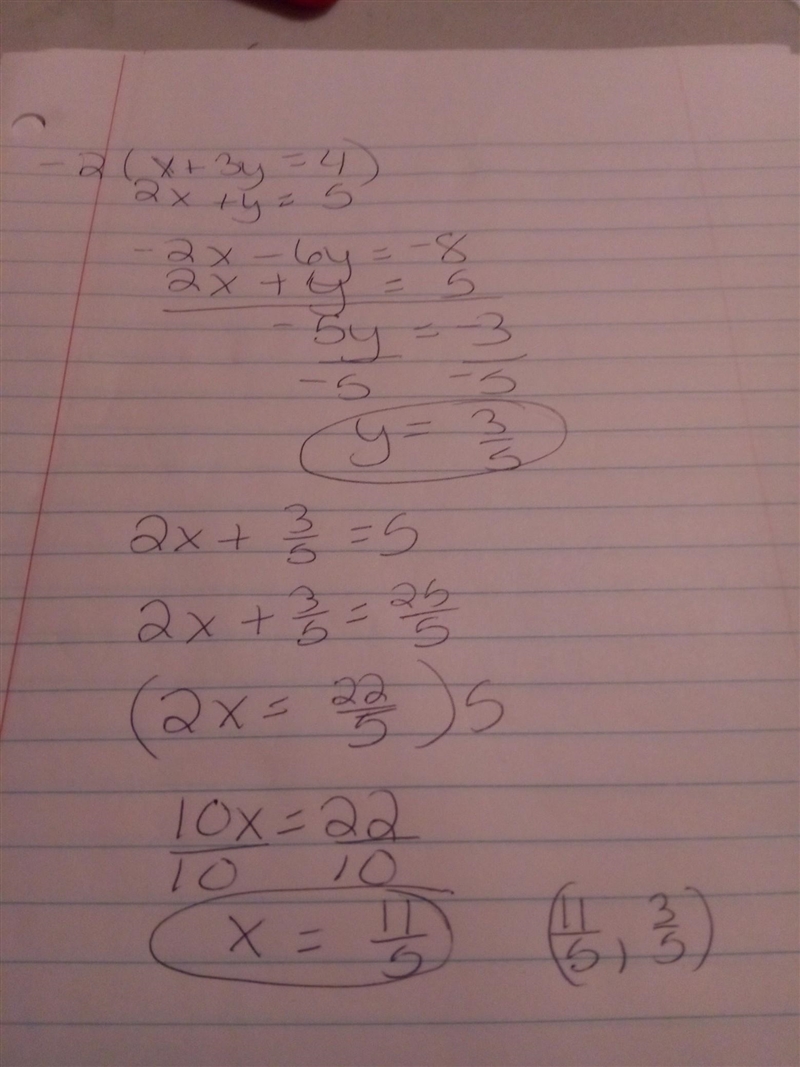 -2(x+3y=4)
2x+y=5
-2x-6y=-8
2x+y=5
-5y=-3
-5 -5
y=3/5
2x+3/5=5
2x+3/5=25/5
(2x=22/5)5
10x=22
10 10
x=11/5 (11/5, 3/5)